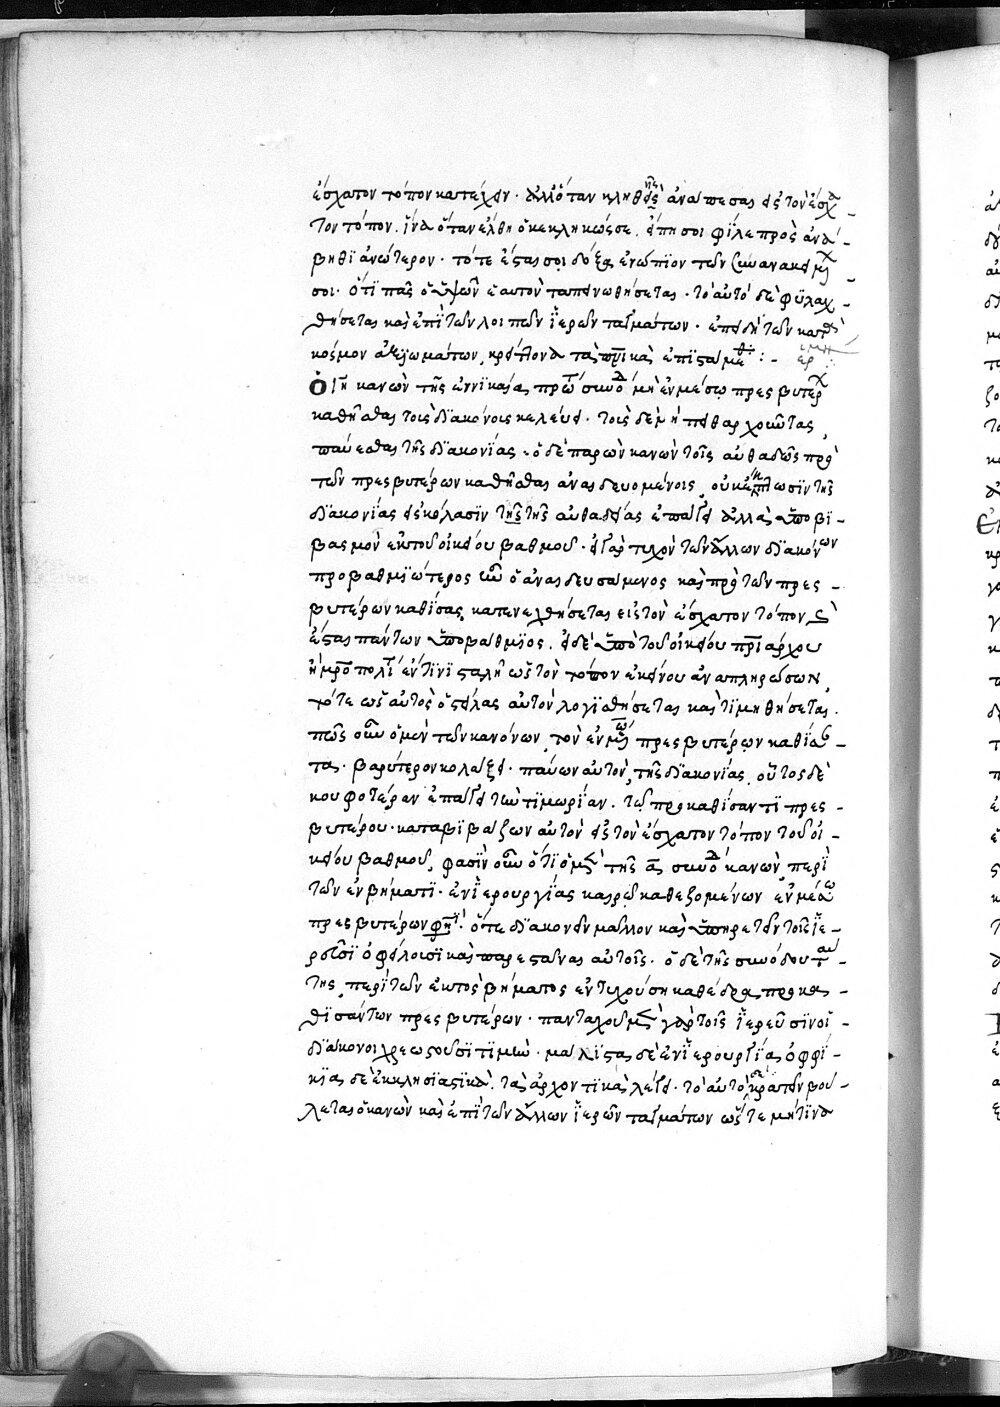 ἔσχατον τόπον κατέχειν· ἀλλ' ὅταν κληθῇς ἀνάπεσαι εἰς τὸν ἔσχα-
τον τόπον. ἵνα ὅταν ἔλθῃ ὁ κεκληκώς σε, εἴπῃ σοι φίλε προσανά-
βηθι ἀνώτερον· τότε ἔσται σοι δόξα ἐνώπιον τῶν συνανακειμένων
σοι· ὅτι πᾶς ὁ ὑψῶν ἑαυτὸν ταπεινωθήσεται· τὸ αὐτὸ δὲ φυλαχ-
θήσεται καὶ ἐπὶ τῶν λοιπῶν ἱερῶν ταγμάτων· ἐπειδὴ τῶν κατὰ
κόσμον ἀξιωμάτων, κρείττονα τὰ πνευματικὰ ἐπιστάμεθα :-
Ὁ ιη κανὼν τῆς ἐν νικαίᾳ πρώτης συνόδου μὴ ἐν μέσῳ πρεσβυτέρων
καθῆσθαι τοὺς διακόνους κελεύει· τοὺς δὲ μὴ πειθαρχοῦντας,
παύεσθαι τῆς διακονίας· ὁ δὲ παρὼν κανὼν τοῖς αὐθαδῶς πρὸ
τῶν πρεσβυτέρων καθῆσθαι ἀναιδευομένοις, οὐκ ἔκπτωσιν τῆς
διακονίας εἰς κόλασιν τῆς αὐθαδείας ἐπάγει ἀλλὰ ὑποβι-
βασμὸν ἐκ τοῦ οἰκείου βαθμοῦ· εἰ γὰρ τυχὸν τῶν ἄλλων διακόνων
προβαθμιώτερος ὢν ὁ ἀναιδευσάμενος καὶ πρὸ τῶν πρεσ-
βυτέρων καθίσας, κατενεχθήσεται εἰς τὸν ἔσχατον τόπον καὶ
ἔσται πάντων ὑποβάθμιος. εἰ δὲ ὑπὸ τοῦ οἰκείου πατριάρχου
ἢ μητροπολίτου ἔν τινι σταλῇ ὡς τὸν τόπον ἐκείνου ἀναπληρώσων,
τότε ὡς αὐτὸς ὁ στείλας αὐτὸν λογισθήσεται καὶ τιμηθήσεται.
πῶς οὖν ὁ μὲν τῶν κανόνων, τὸν ἐν μέσῳ πρεσβυτέρων καθίσαν-
τα· βαρύτερον κολάζει· παύων αὐτὸν, τῆς διακονίας, οὗτος δὲ
κουφοτέραν ἐπάγει τὴν τιμωρίαν. τῷ προκαθίσαντι πρεσ-
βυτέρου· καταβιβάζων αὐτὸν εἰς τὸν ἔσχατον τόπον τοῦ οἰ-
κείου βαθμοῦ, φασὶν οὖν ὅτι ὁ μὲν τῆς α συνόδου κανὼν, περὶ
τῶν ἐν βήματι· ἐν ἱερουργίας καιρῷ καθεζομένων ἐν μέσῳ
πρεσβυτέρων φησὶ· ὅτε διακονεῖν μᾶλλον καὶ ὑπηρετεῖν τοῖς ἱε-
ρεῦσι ὀφείλουσι καὶ παρεστάναι αὐτοῖς· ὁ δὲ τῆς συνόδου ταύ-
της, περὶ τῶν ἐκτὸς βήματος ἐν τυχούσῃ καθέδρᾳ προκα-
θισάντων πρεσβυτέρων· πανταχοῦ μὲν γὰρ τοῖς ἱερεῦσιν οἱ
διάκονοι χρεωστοῦσι τιμὴν· μάλιστα δὲ ἐν ἱερουργίᾳ ὀφφί-
κια δὲ ἐκκλησιαστικὰ, τὰ ἀρχοντικὰ λέγει· τὸ αὐτὸ κρατεῖν βού-
λεται ὁ κανὼν καὶ ἐπὶ τῶν ἄλλων ἱερῶν ταγμάτων ὥστε μή τινα